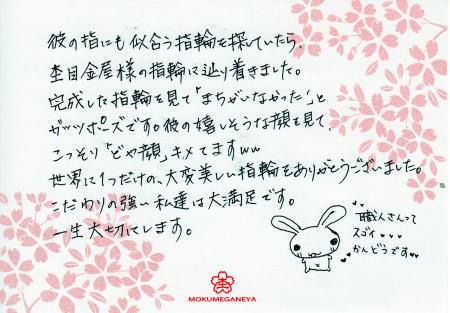 彼の指にも似合う指輪を探していたら、
杢目金屋様の指輪に辿り着きました。
完成した指輪を見て「まちがいなかった!」と
ガッツポーズです。彼の嬉しそうな顔を見て、
こっそり「どや顔」キメてますww
世界に1つだけの、大変美しい指輪をありがとうございました。
こだわりの強い私達は大満足です。
一生大切にします。
職人さんって
スゴイ
かんどうです
杢
MOKUMEGANEYA